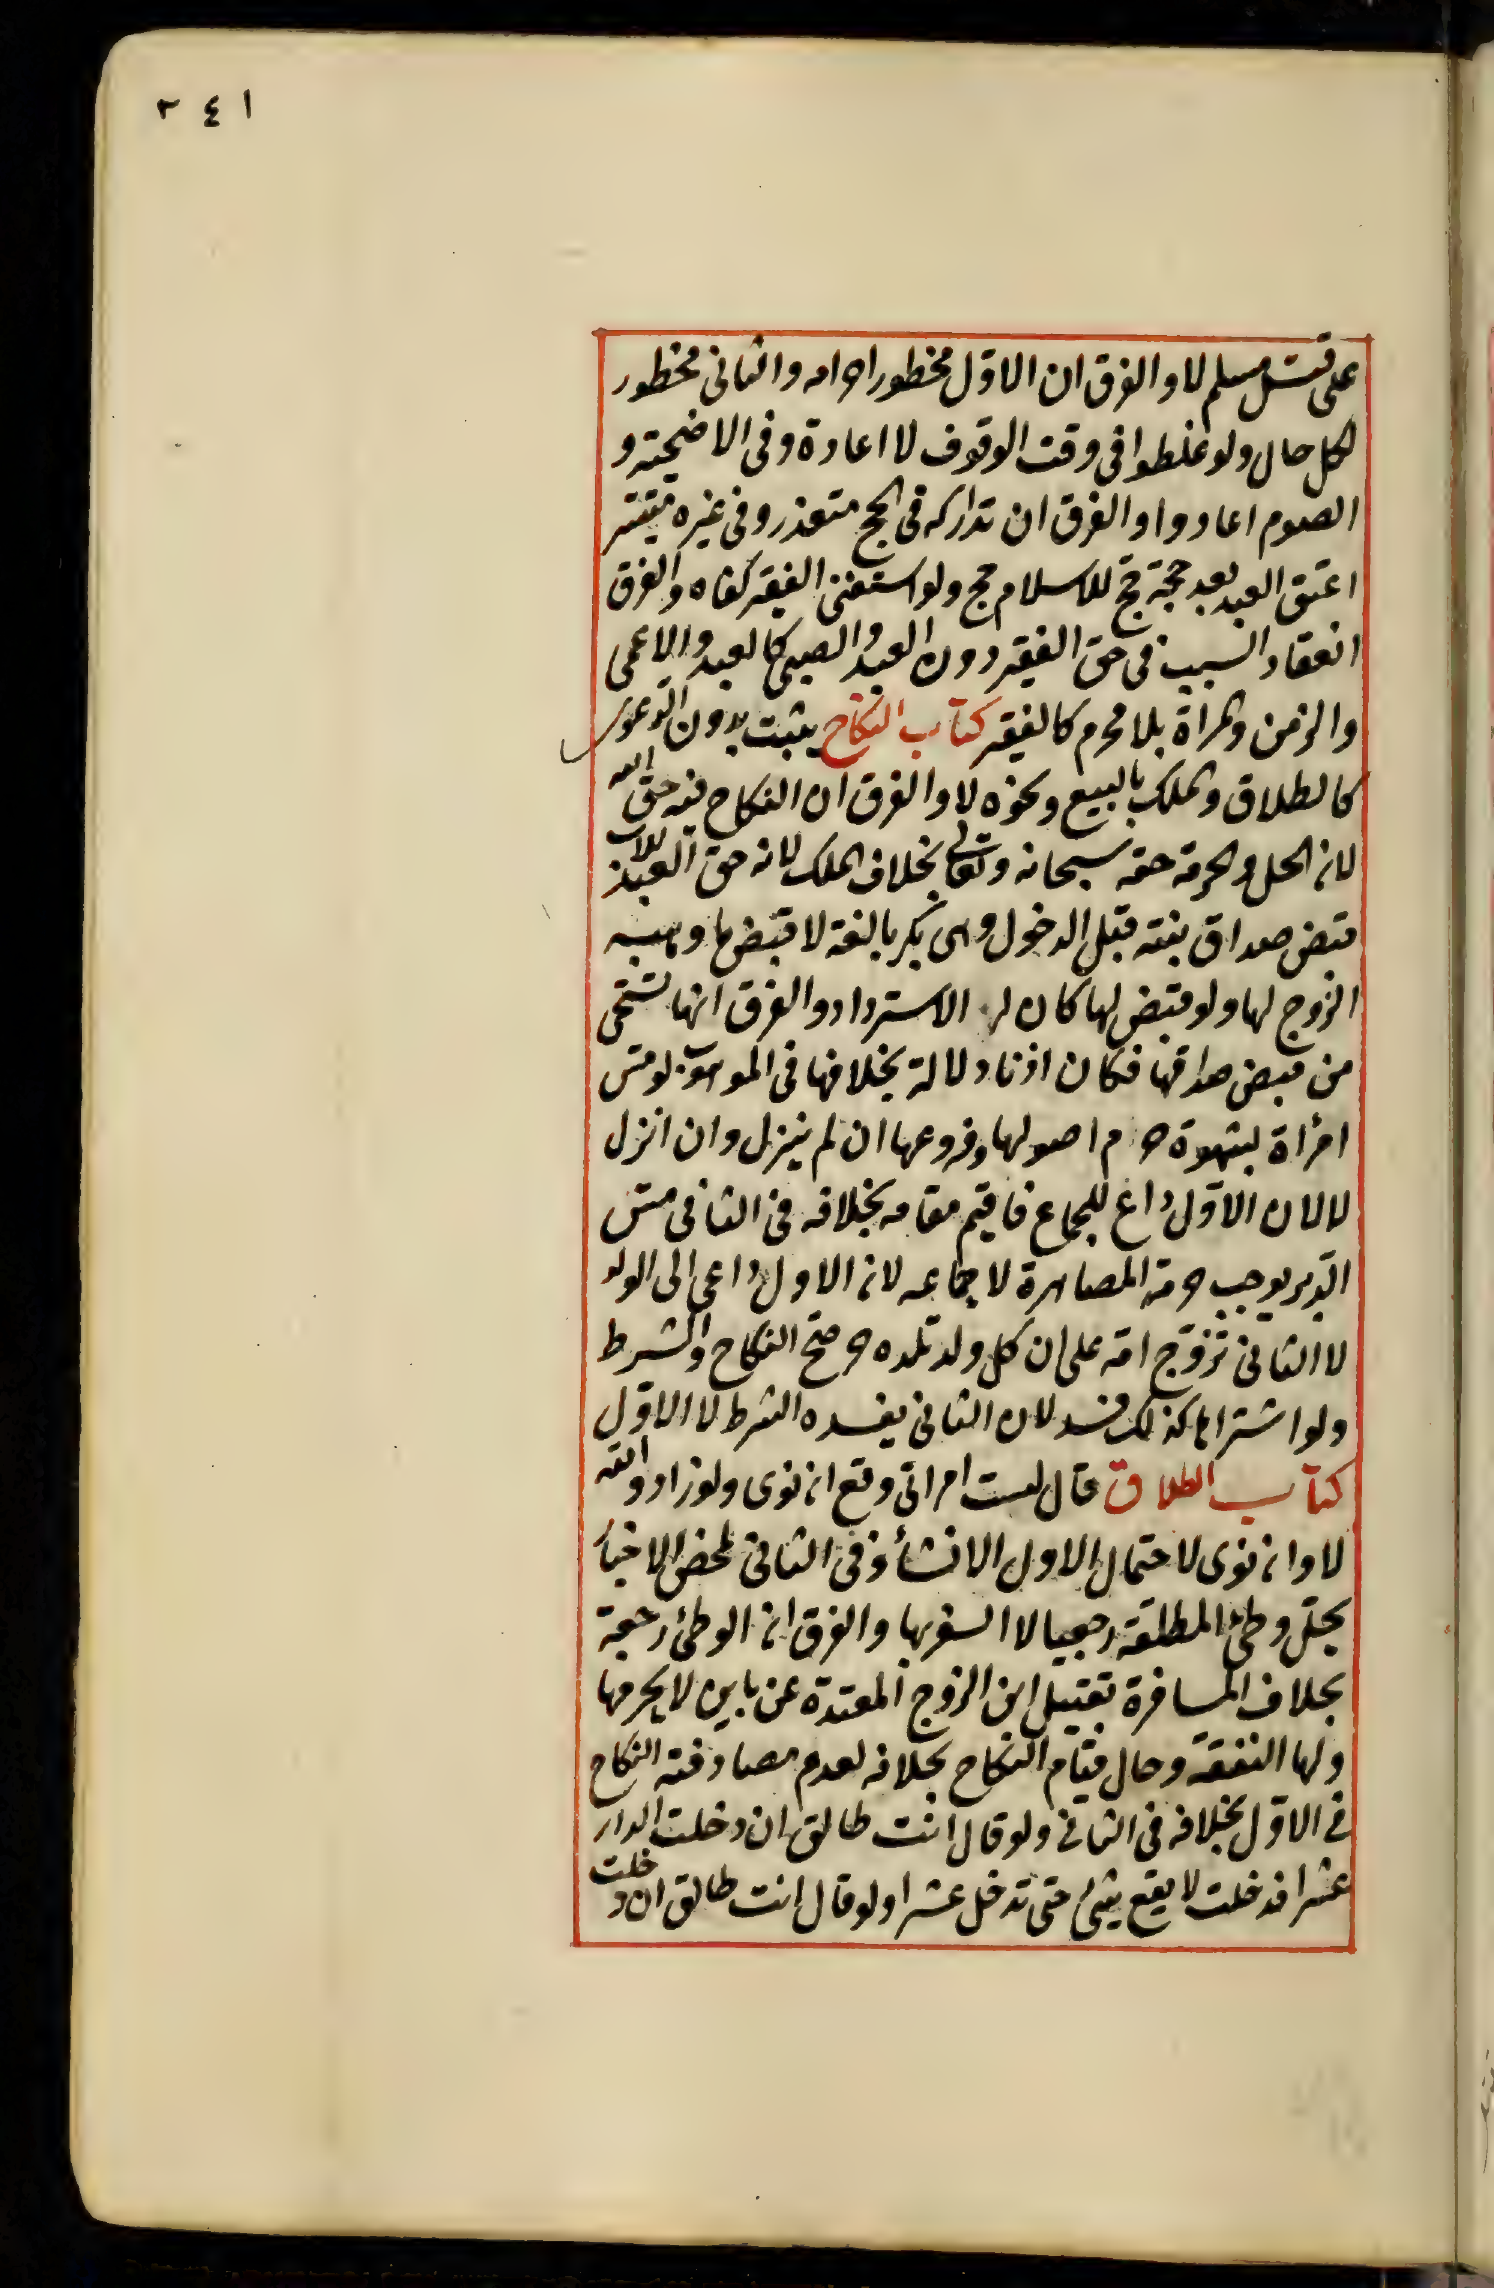 ٢٤١
على قتل مسلم لا والفرق ان الاوّل محظور احرامه والثانى محظور
لكل حال ولو غلطوا فى وقت الوقوف لا اعادة وفى الاضحية و
الصوم اعادوا والفرق ان تداركه فى الحج متعذر وفى غيره متيسر
اعتق العبد بعد حجة حج للاسلام حج ولو استغنى الفقير كفاه والفرق
انعقاد السبب فى حق الفقير دون العبد والصبى كالعبد والاعمى
والزمن والمرأة بلا محرم كالفقير كتاب النكاح يثبت بدون الدعوى
كالطلاق والملك بالبيع ونحوه لا والفرق ان النكاح فيه حق الله
لان الحل والحرمة حقه سبحانه وتعالى بخلاف الملك لانه حق العبد للاب
قبض صداق بنته قبل الدخول وهى بكر بالغة لا قبض ما وهبه
الزوج لها ولو قبض لها كان له الاسترداد والفرق انها تستحى
من قبض صداقها فكان اذنا دلالة بخلافها فى الموهوب لو مس
امرأة بشهوة حرم اصولها وفروعها ان لم ينزل وان انزل
لا لان الاوّل داع للجماع فاقيم مقامه بخلافه فى الثانى مس
الدبر يوجب حرمة المصاهرة لا جماعه لان الاول داعى الى الولد
لا الثانى تزوّج امة على ان كل ولد تلده حر صح النكاح والشرط
ولو اشتراها كذلك فسد لان الثانى يفسده الشرط لا الاوّل
كتاب الطلاق قال لست امراتى وقع ان نوى ولو زاد والله
لا وان نوى لاحتمال الاول الانشأ وفى الثانى لمحض الاخبار
يحل وطئ المطلقة رجعيا لا السفر بها والفرق ان الوطئ رجعة
بخلاف المسافرة تقبيل ابن الزوج المعتدة عن باين لا يحرمها
ولها النفقة وحال قيام النكاح بخلافه لعدم مصادفته النكاح
فى الاوّل بخلافه فى الثانى ولو قال انت طالق ان دخلت الدار
عشرا فدخلت لا يقع شئ حتى تدخل عشرا ولو قال انت طالق ان دخلت